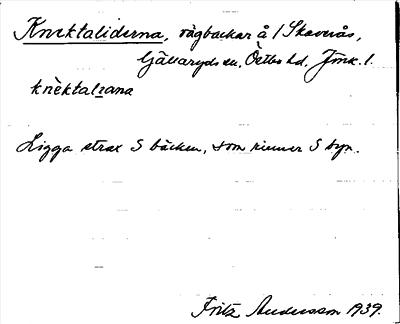 Knektaliderna, vägbackar å /Skaverås,
Gällaryds sn, Östbo hd, Jönk. l.
knèktaliᴅana
Ligga strax S bäcken, som rinner S byn.
Fritz Andersson 1939.